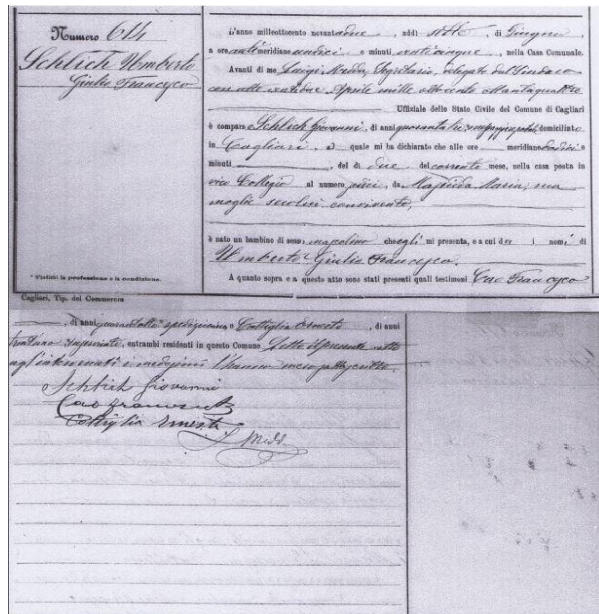 Numero 614
Schlich Umberto
Giulio Francesco
* Visibili la professione e la condizione.
Cagliari, Tip. del Commercio
L'anno milleottocento novantadue, addì sette, di Giugno,
a ore antimeridiane undici e minuti venticinque, nella Casa Comunale.
Avanti di me Luigi Segretario, delegato dal Sindaco
con atto ventidue Aprile mille ottocento
Uffiziale dello Stato Civile del Comune di Cagliari
è comparso Schlich Giovanni, di anni quarantatre, domiciliato
in Cagliari, il quale mi ha dichiarato che alle ore meridiane dodici e
minuti, del dì due del corrente mese, nella casa posta in
vico Collegio al numero, da Maria, sua
moglie secolui convivente,
è nato un bambino di sesso mascolino che egli mi presenta, e a cui dà i nomi di
Umberto Giulio Francesco.
A quanto sopra e a questo atto sono stati presenti quali testimoni Cao Francesco
, di anni quarantotto spedizioniere e Cottiglia Ernesto, di anni
, entrambi residenti in questo Comune. Letto il presente atto
agli intervenuti i medesimi l'hanno meco sottoscritto.
Schlich Giovanni
Cao Francesco
Cottiglia Ernesto